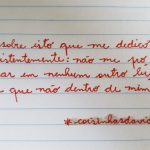 sobre isto que me dedico
istentemente: não me po
ar em nenhum outro lu
que não dentro de mim
#coisinhasdavid